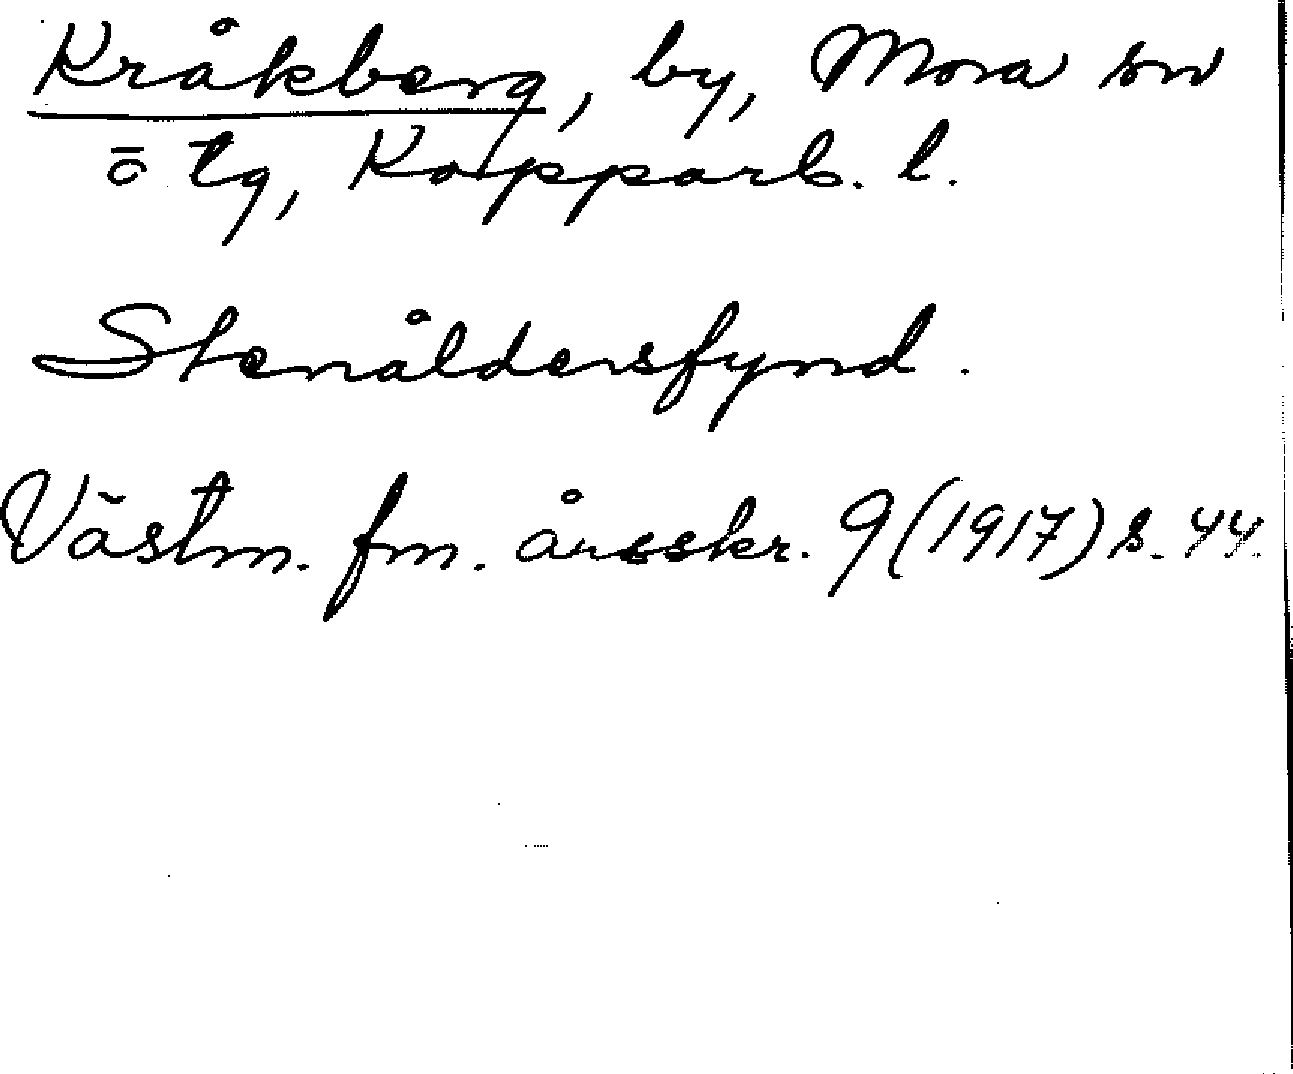 Kråkberg, by, Mora sn
ö tg, Kopparb. l.
Stenåldersfynd.
Västm. fm. årsskr. 9 (1917) s. 44.